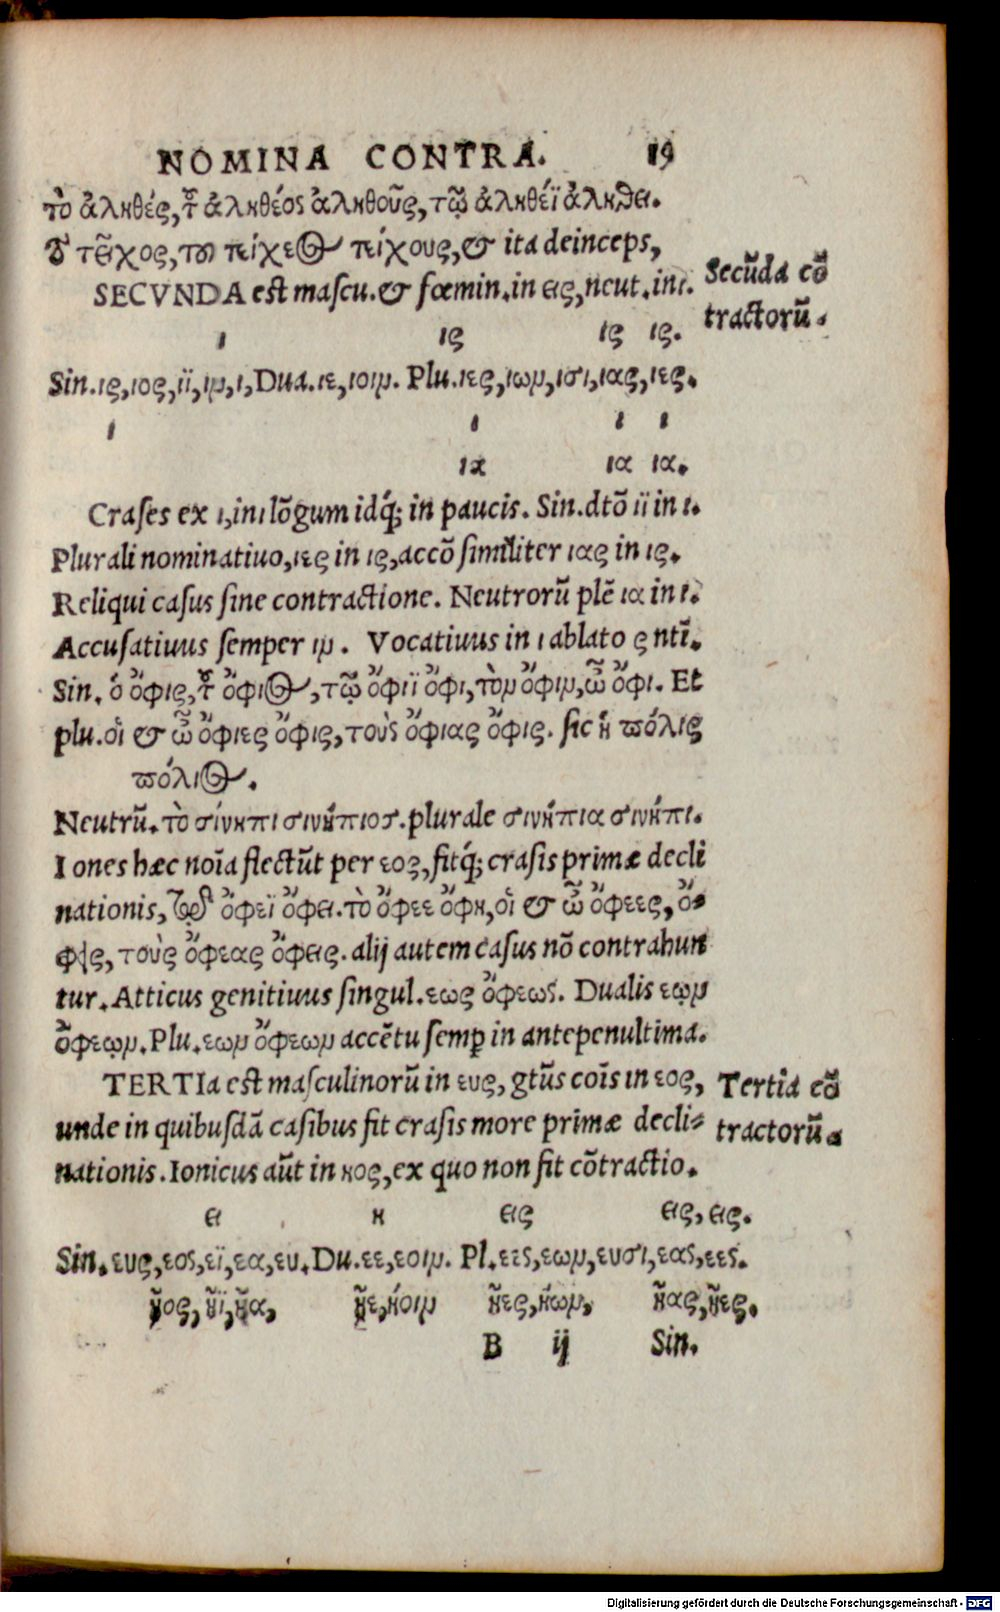 NOMINA CONTRA. 19
τὸ ἀληθές, τ͂ ἀληθέος ἀληθοῦς, τῷ ἀληθέϊ ἀληθει.
τεῖχος, πίχεος πίχους, & ita deinceps,
SECVNDA est mascu. & fœmin. in εις, neut. in ι.
Secũda cõ
tractorũ.
ι ις ις ις.
Sin. ις, ιος, ιϊ, ιμ, ι, Dua. ιε, ιοιμ. Plu. ιες, ιωμ, ισι, ιας, ιες.
ι ι ι ι
ια ια ια.
Crases ex ι, in ι lõgum idq́; in paucis. Sin. dtõ ιϊ in ι.
Plurali nominatiuo, ιες in ις, accõ similiter ιας in ις.
Reliqui casus sine contractione. Neutrorũ plẽ ια in ι.
Accusatiuus semper ιμ. Vocatiuus in ι ablato ς ntĩ.
Sin. ὁ ὄφις, τ͂ ὄφιος, τῷ ὄφιϊ ὄφι, τὸμ ὄφιμ, ὦ ὄφι. Et
plu. οἱ & ὦ ὄφιες ὄφις, τοὺς ὄφιας ὄφις. sic ἡ πόλις
πόλιος.
Neutrũ. τὸ σίνηπι σινήπιος. plurale σινήπια σινήπι.
Iones hæc noĩa flectũt per εος, fitq́; crasis primæ decli
nationis, τῷ ὄφεϊ ὄφει. τὸ ὄφεε ὄφη, οἱ & ὦ ὄφεες, ὄ-
φεις, τοὺς ὄφεας ὄφεις. alij autem casus nõ contrahun
tur. Atticus genitiuus singul. εως ὄφεως. Dualis εῳμ
ὄφεῳμ. Plu. εωμ ὄφεωμ accẽtu semp in antepenultima.
TERTIA est masculinorũ in ευς, gtũs coĩs in εος,
Tertia cõ
tractorũ.
unde in quibusdã casibus fit crasis more primæ decli-
nationis. Ionicus aũt in ηος, ex quo non fit cõtractio.
ει η εις εις, εις.
Sin. ευς, εος, εϊ, εα, ευ. Du. εε, εοιμ. Pl. εες, εωμ, ευσι, εας, εες.
ῆος, ῆϊ, ῆα, ῆε, ήοιμ ῆες, ήωμ, ῆας, ῆες.
B ij Sin.
Digitalisierung gefördert durch die Deutsche Forschungsgemeinschaft - DFG